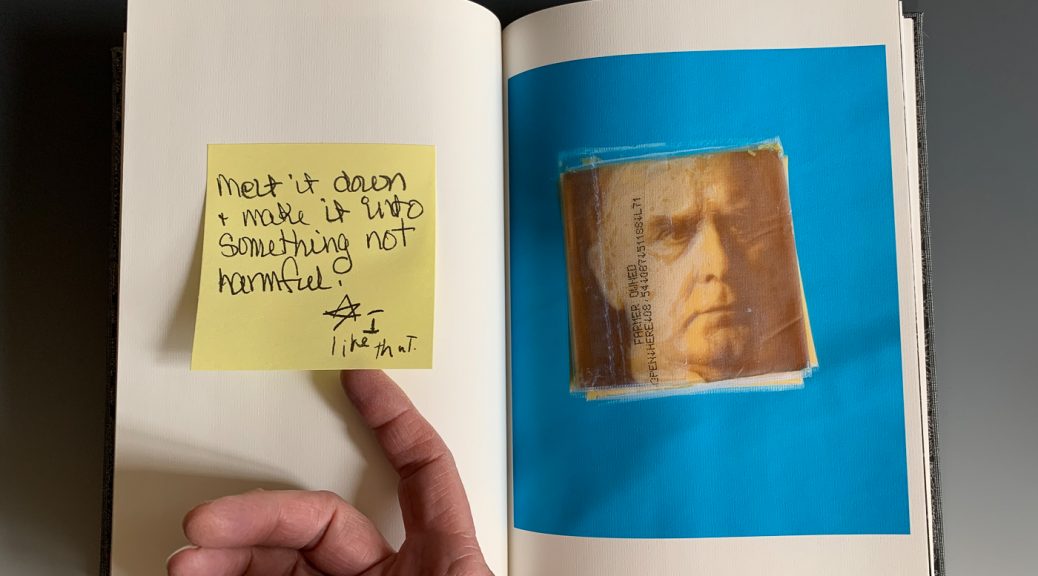 Melt it down
+ make it into
something not
harmful!
☆ - I
like that.
FARMER OWNED
OPEN HERE